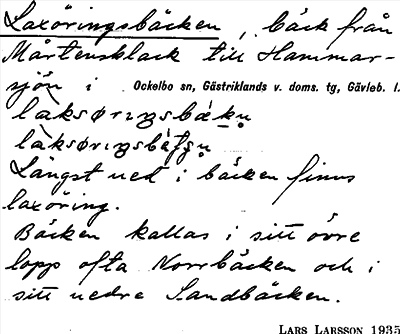 Laxöringsbäcken, bäck från
Mårtensklack till Hammar-
sjön i Ockelbo sn, Gästriklands v. doms. tg, Gävleb. l.
Längst ned i bäcken finns
laxöring.
Bäcken kallas i sitt övre
lopp ofta Norrbäcken och i
sitt nedre Sandbäcken.
LARS LARSSON 1935